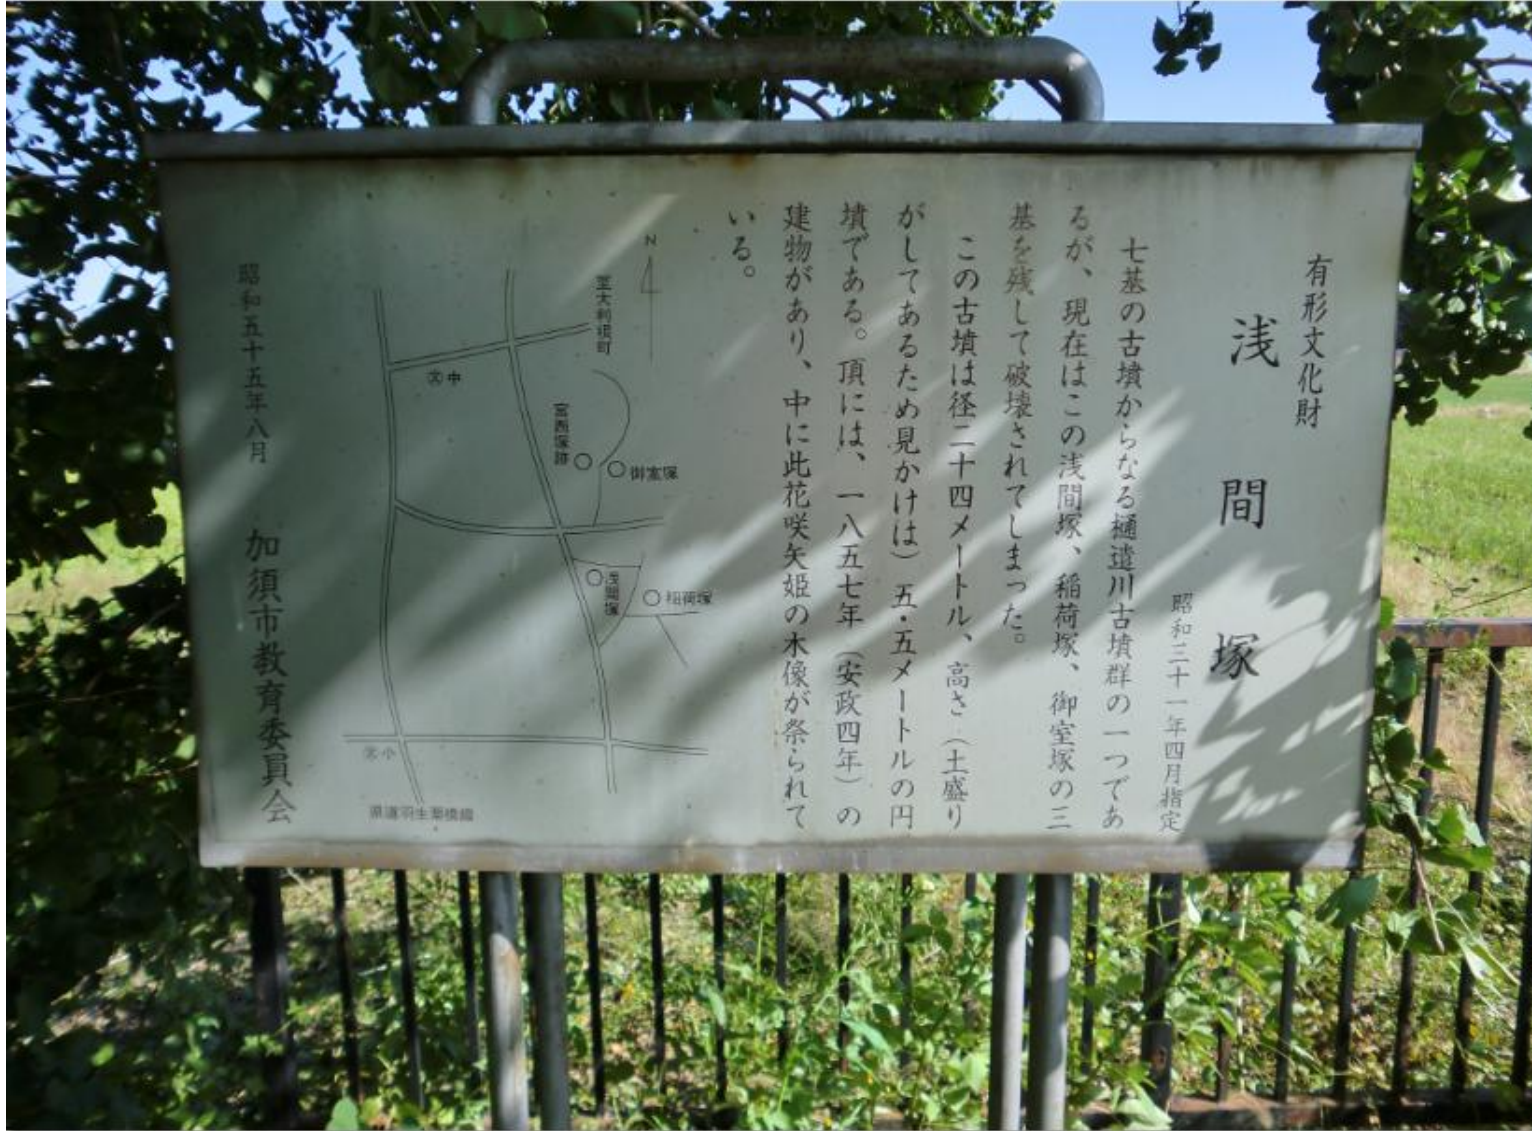 有形文化財
浅間塚
昭和三十一年四月指定
七基の古墳からなる樋遣川古墳群の一つであ
るが、現在はこの浅間塚、稲荷塚、御室塚の三
基を残して破壊されてしまった。
この古墳は径二十四メートル、高さ（土盛り
がしてあるため見かけは）五・五メートルの円
墳である。頂には、一八五七年（安政四年）の
建物があり、中に此花咲矢姫の木像が祭られて
いる。
N
至大利根町
文中
宮西塚跡
御室塚
浅間塚
稲荷塚
文小
県道羽生栗橋線
昭和五十五年八月
加須市教育委員会